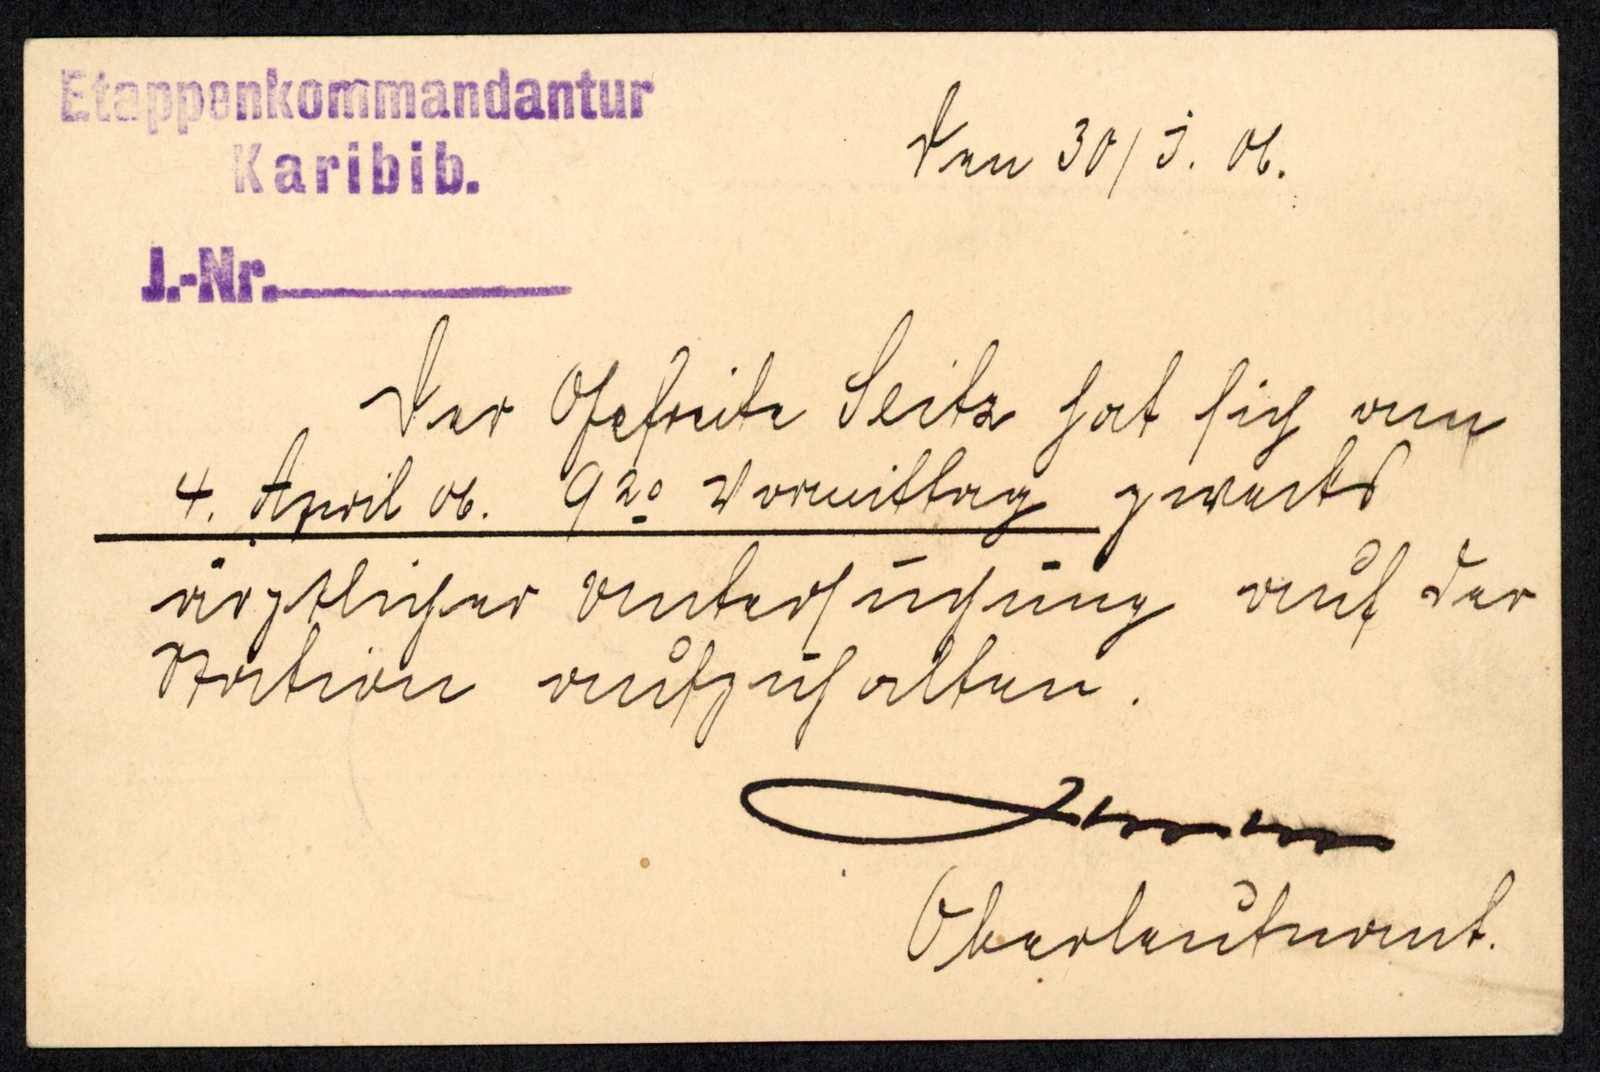 Etappenkommandantur
Karibib.
J.-Nr.
Den 30/3. 06.
Der Gefreite Seitz hat sich am
4. April 06. 9 20 Vormittag zwecks
ärztlicher Untersuchung auf der
Station aufzuhalten.
Oberleutnant.